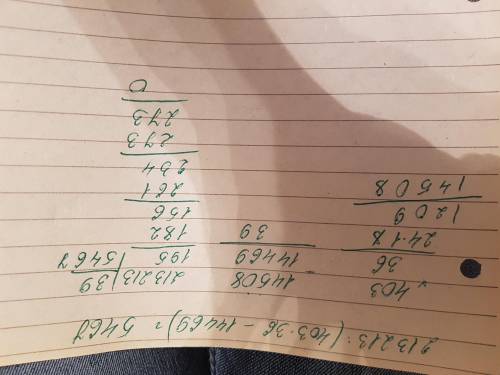 213213 : (403·36 - 14469) = 5467
×403
36
24·18
1209
14508
14508
14469
39
213213 | 39
195 | 5467
182
156
261
234
273
273
0